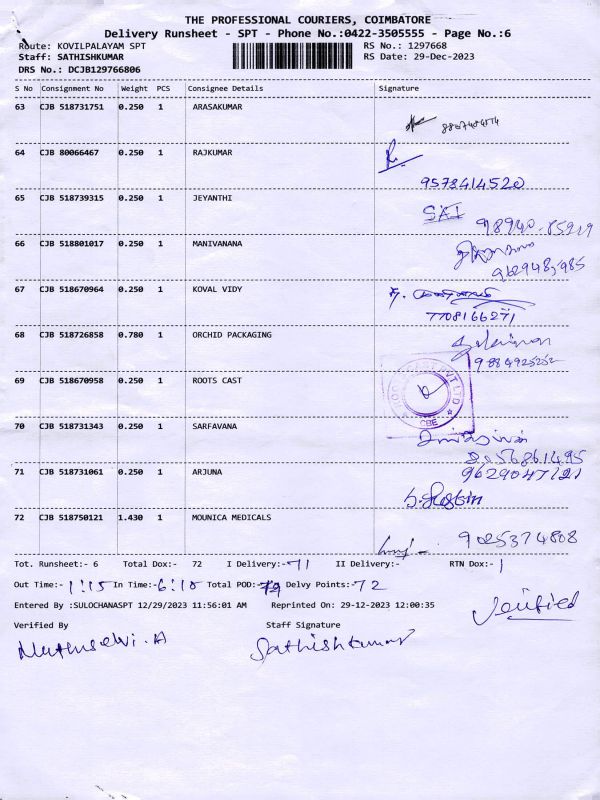 THE PROFESSIONAL COURIERS, COIMBATORE
Delivery Runsheet - SPT - Phone No.:0422-3505555 - Page No.:6
Route: KOVILPALAYAM SPT RS No.: 1297668
Staff: SATHISHKUMAR RS Date: 29-Dec-2023
DRS No.: DCJB129766806
S No Consignment No Weight PCS Consignee Details Signature
63 CJB 518731751 0.250 1 ARASAKUMAR
64 CJB 80066467 0.250 1 RAJKUMAR
9578414520
65 CJB 518739315 0.250 1 JEYANTHI
SAI
66 CJB 518801017 0.250 1 MANIVANANA
67 CJB 518670964 0.250 1 KOVAL VIDY
7708166271
68 CJB 518726858 0.780 1 ORCHID PACKAGING
9884925252
69 CJB 518670958 0.250 1 ROOTS CAST
PVT LTD
CBE
70 CJB 518731343 0.250 1 SARFAVANA
71 CJB 518731061 0.250 1 ARJUNA
9629047121
72 CJB 518750121 1.430 1 MOUNICA MEDICALS
9025374808
Tot. Runsheet:- 6 Total Dox:- 72 I Delivery:- 71 II Delivery:- RTN Dox:- 1
Out Time:- 1:15 In Time:- 6:10 Total POD:- Delvy Points:- 72
Entered By :SULOCHANASPT 12/29/2023 11:56:01 AM Reprinted On: 29-12-2023 12:00:35
Verified
Verified By Staff Signature
Muthuselvi.A Sathishkumar